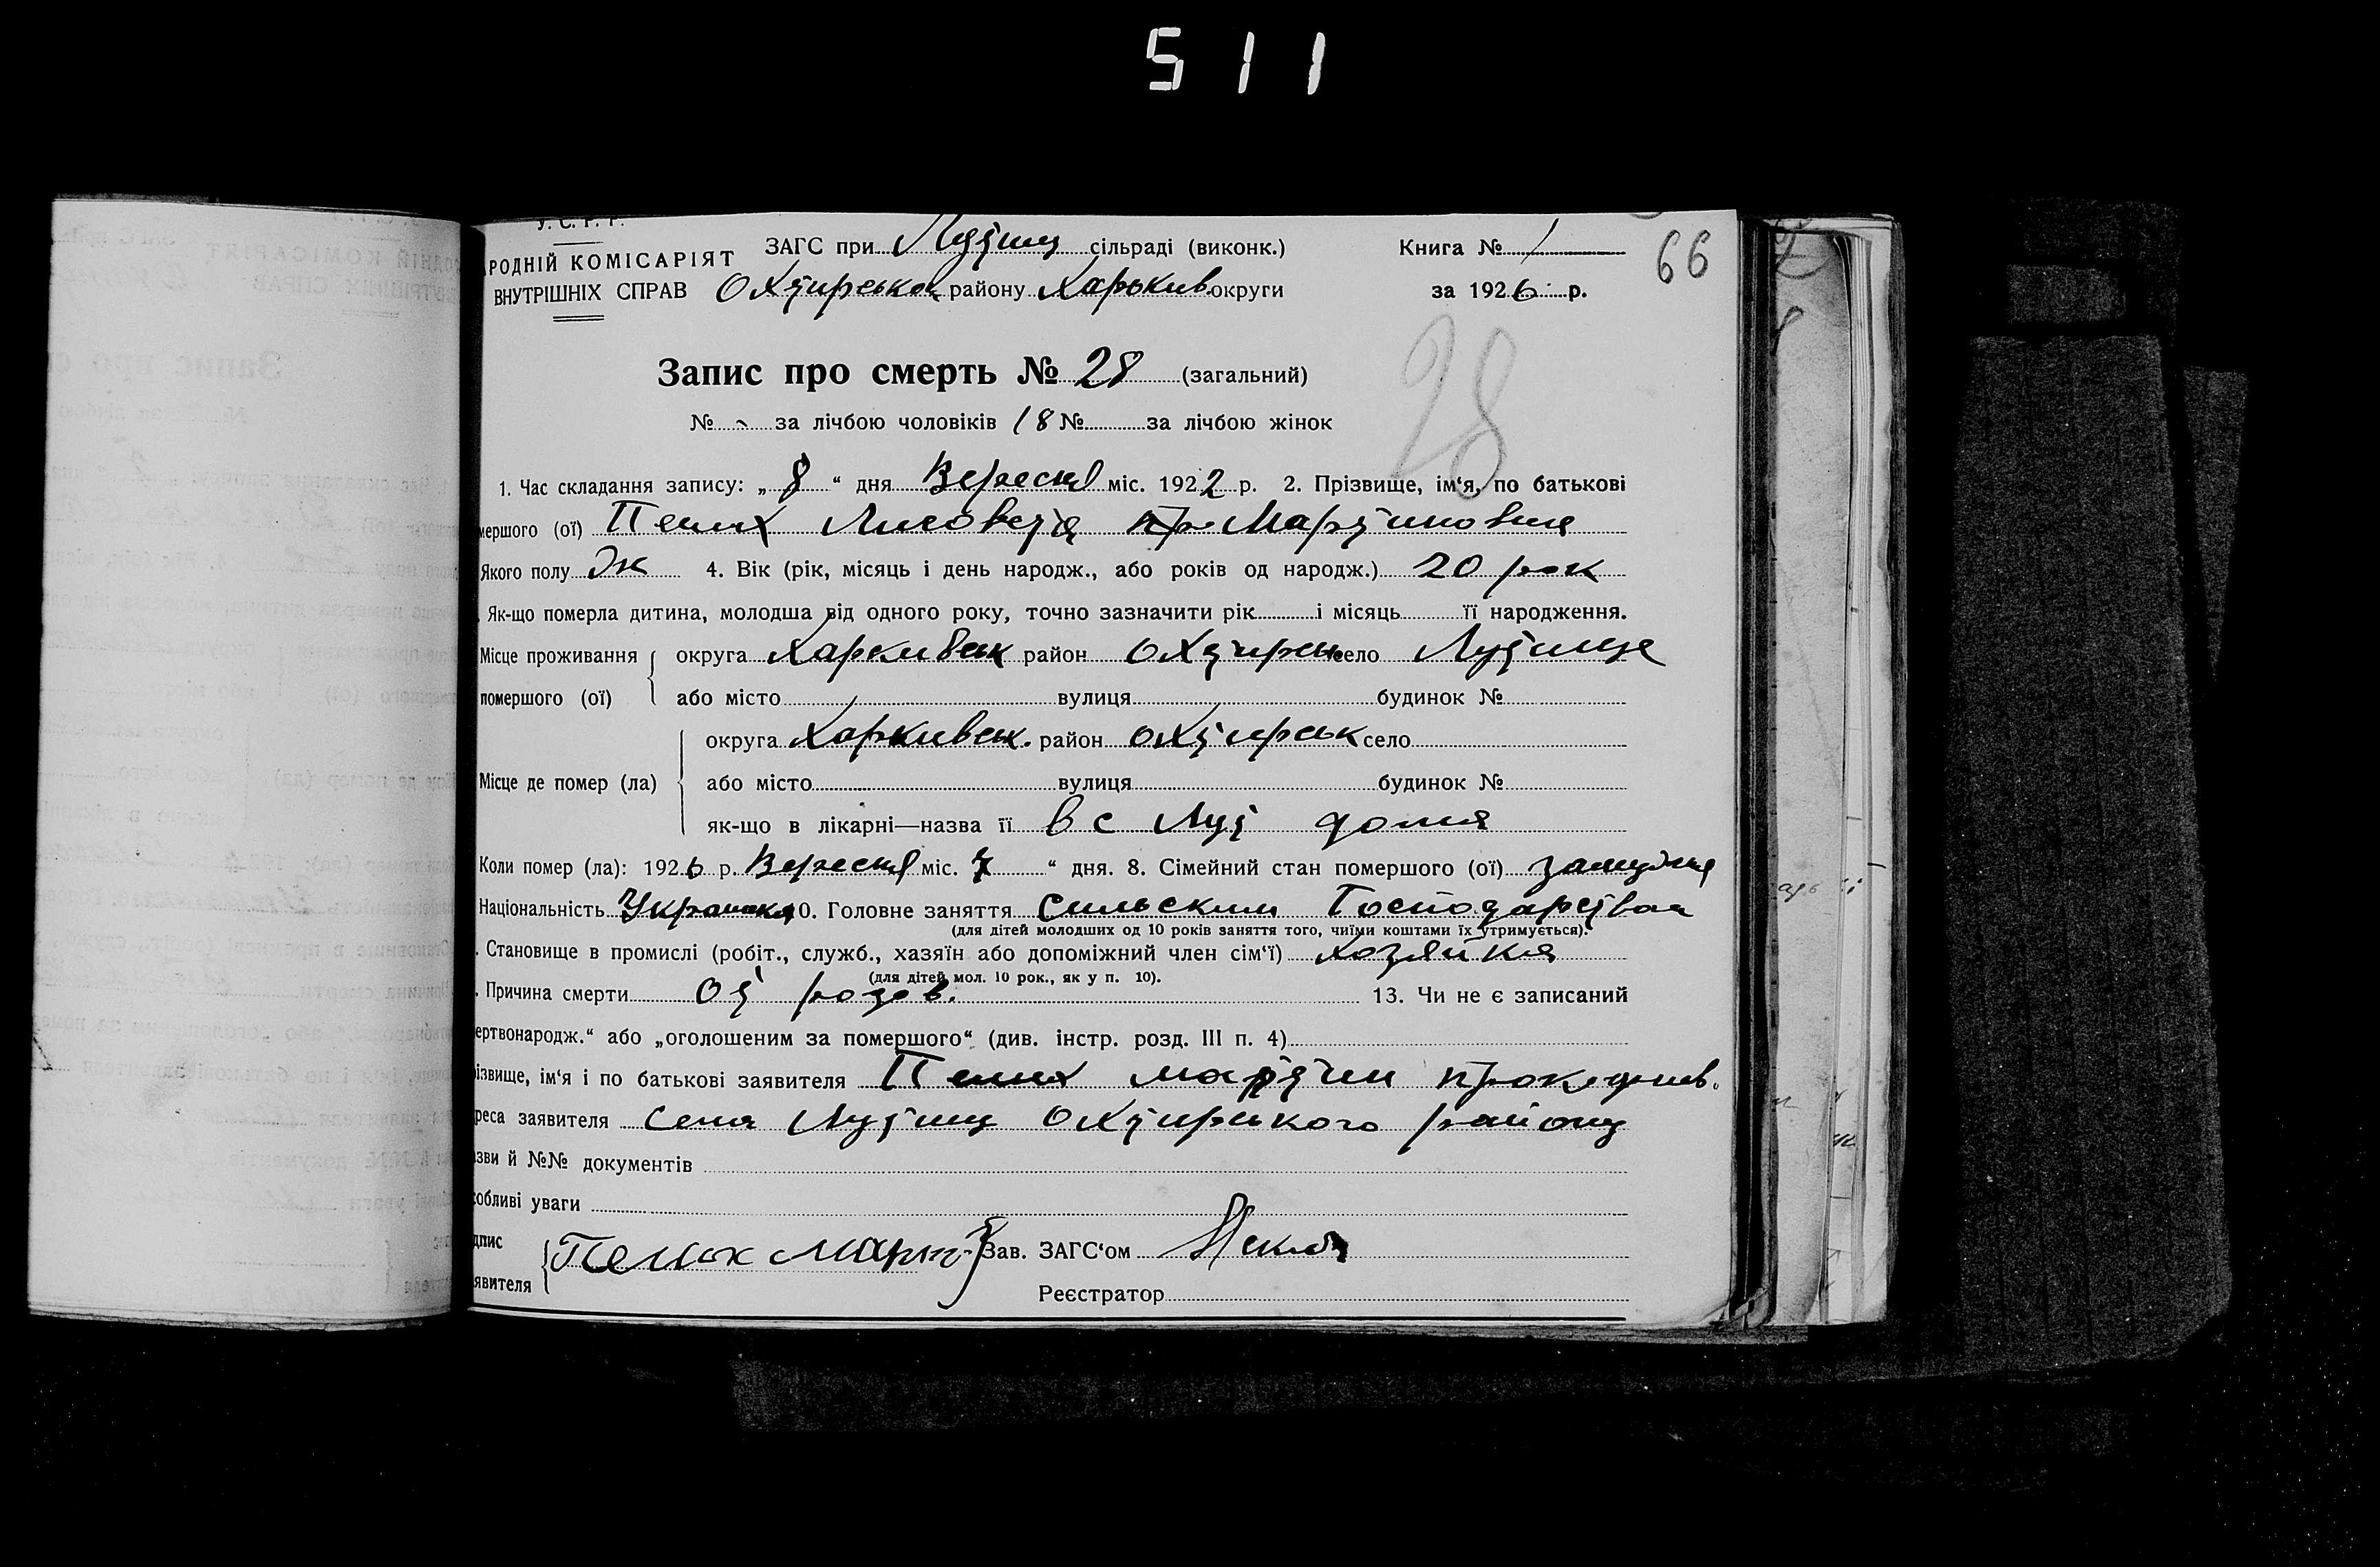 511
У. С. Р. Р.
РОДНІЙ КОМІСАРІЯТ ЗАГС при Лутищ сільраді (виконк.) Книга № 1 66
ВНУТРІШНІХ СПРАВ Охтирськом району Харькив округи за 1926 р.
28
Запис про смерть № 28 (загальний)
№ за лічбою чоловіків 18 № за лічбою жінок
1. Час складання запису: „ 8 “ дня Вересня міс. 1922 р. 2. Прізвище, ім‘я, по батькові
мершого (ої) Лисовета Мартиновна
Якого полу Ж 4. Вік (рік, місяць і день народж., або років од народж.) 20 рок
Як-що померла дитина, молодша від одного року, точно зазначити рік і місяць її народження.
Місце проживання округа Харкивськ район Охтирськ село Лутище
помершого (ої) або місто вулиця будинок №
округа Харкивськ. район Охтирськ село
Місце де помер (ла) або місто вулиця будинок №
як-що в лікарні—назва її в с Лут дома
Коли помер (ла): 1926 р. Вересня міс. 7 “ дня. 8. Сімейний стан помершого (ої) замужня
Національність Украинка 10. Головне заняття Сильским Господарством
(для дітей молодших од 10 років заняття того, чиїми коштами їх утримується).
. Становище в промислі (робіт., служб., хазяїн або допоміжний член сім‘ї) хозяйка
(для дітей мол. 10 рок., як у п. 10).
. Причина смерти От родов. 13. Чи не є записаний
ертвонародж.“ або „оголошеним за помершого“ (див. інстр. розд. III п. 4)
різвище, ім‘я і по батькові заявителя Мартин
реса заявителя Села Лутищ Охтирського району
зви й №№ документів
собливі уваги
дпис Март Зав. ЗАГС‘ом
явителя
Реєстратор